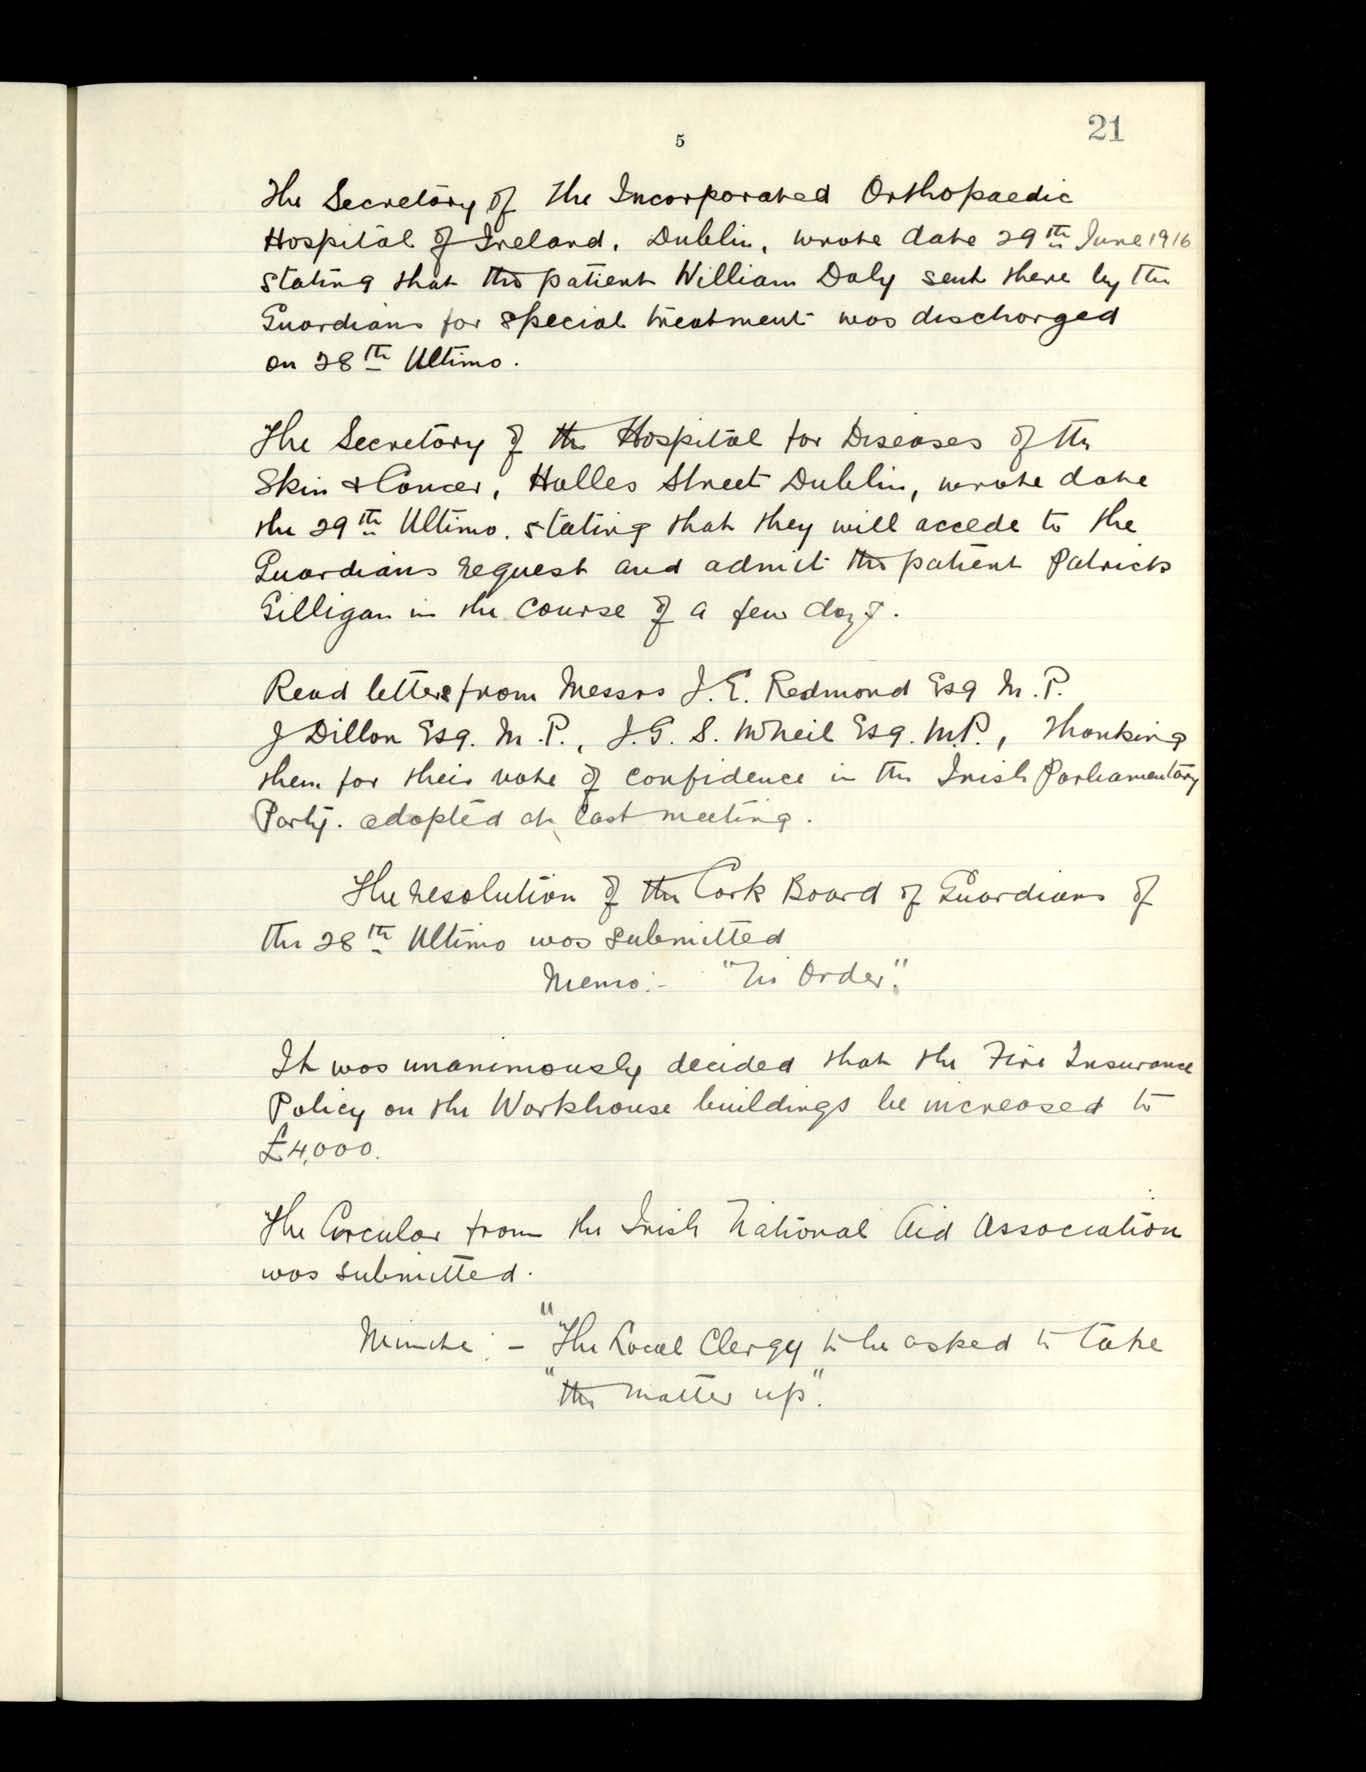 21
5
The Secretary of the Incorporated Orthopaedic
Hospital of Ireland. Dublin, wrote date 29th June 1916
stating that the patient William Daly sent there by the
Guardians for special treatment was discharged
on 28th Ultimo.
The Secretary of the Hospital for Diseases of the
Skin & Cancer, Holles Street Dublin, wrote date
the 29th Ultimo. stating that they will accede to the
Guardians request and admit the patient Patrick
Gilligan in the course of a few days.
Read letters from Messrs J. E. Redmond Esq M.P.
J Dillon Esq. M.P., J. G. S. McNeil Esq. M.P., thanking
them for their vote of confidence in the Irish Parliamentary
Party. adopted at last meeting.
The resolution of the Cork Board of Guardians of
the 28th Ultimo was submitted
Memo:- "In Order."
It was unanimously decided that the Fire Insurance
Policy on the Workhouse buildings be increased to
£4,000.
The Circular from the Irish National Aid Association
was submitted.
Minute:- "The Local Clergy to be asked to take
"the matter up".